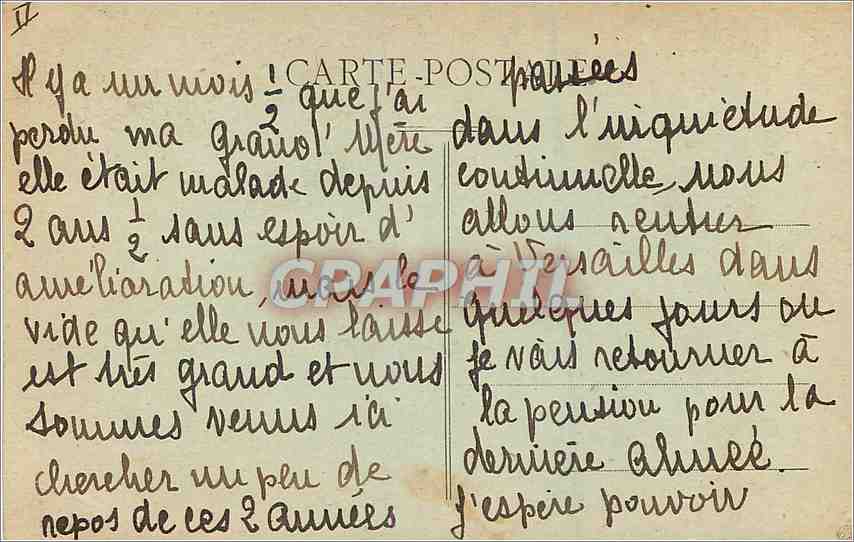 II
CARTE-POSTALE
Il y a un mois 1/2 que j'ai
perdu ma grand' Mère
elle était malade depuis
2 ans 1/2 sans espoir d'
amélioration, mais le
vide qu'elle nous laisse
est très grand et nous
sommes venus ici
chercher un peu de
repos de ces 2 années
passées
dans l'inquiétude
continuelle, nous
allons rentrer
à Versailles dans
quelques jours ou
je vais retourner à
la pension pour la
dernière année.
j'espère pouvoir
GRAPHIL